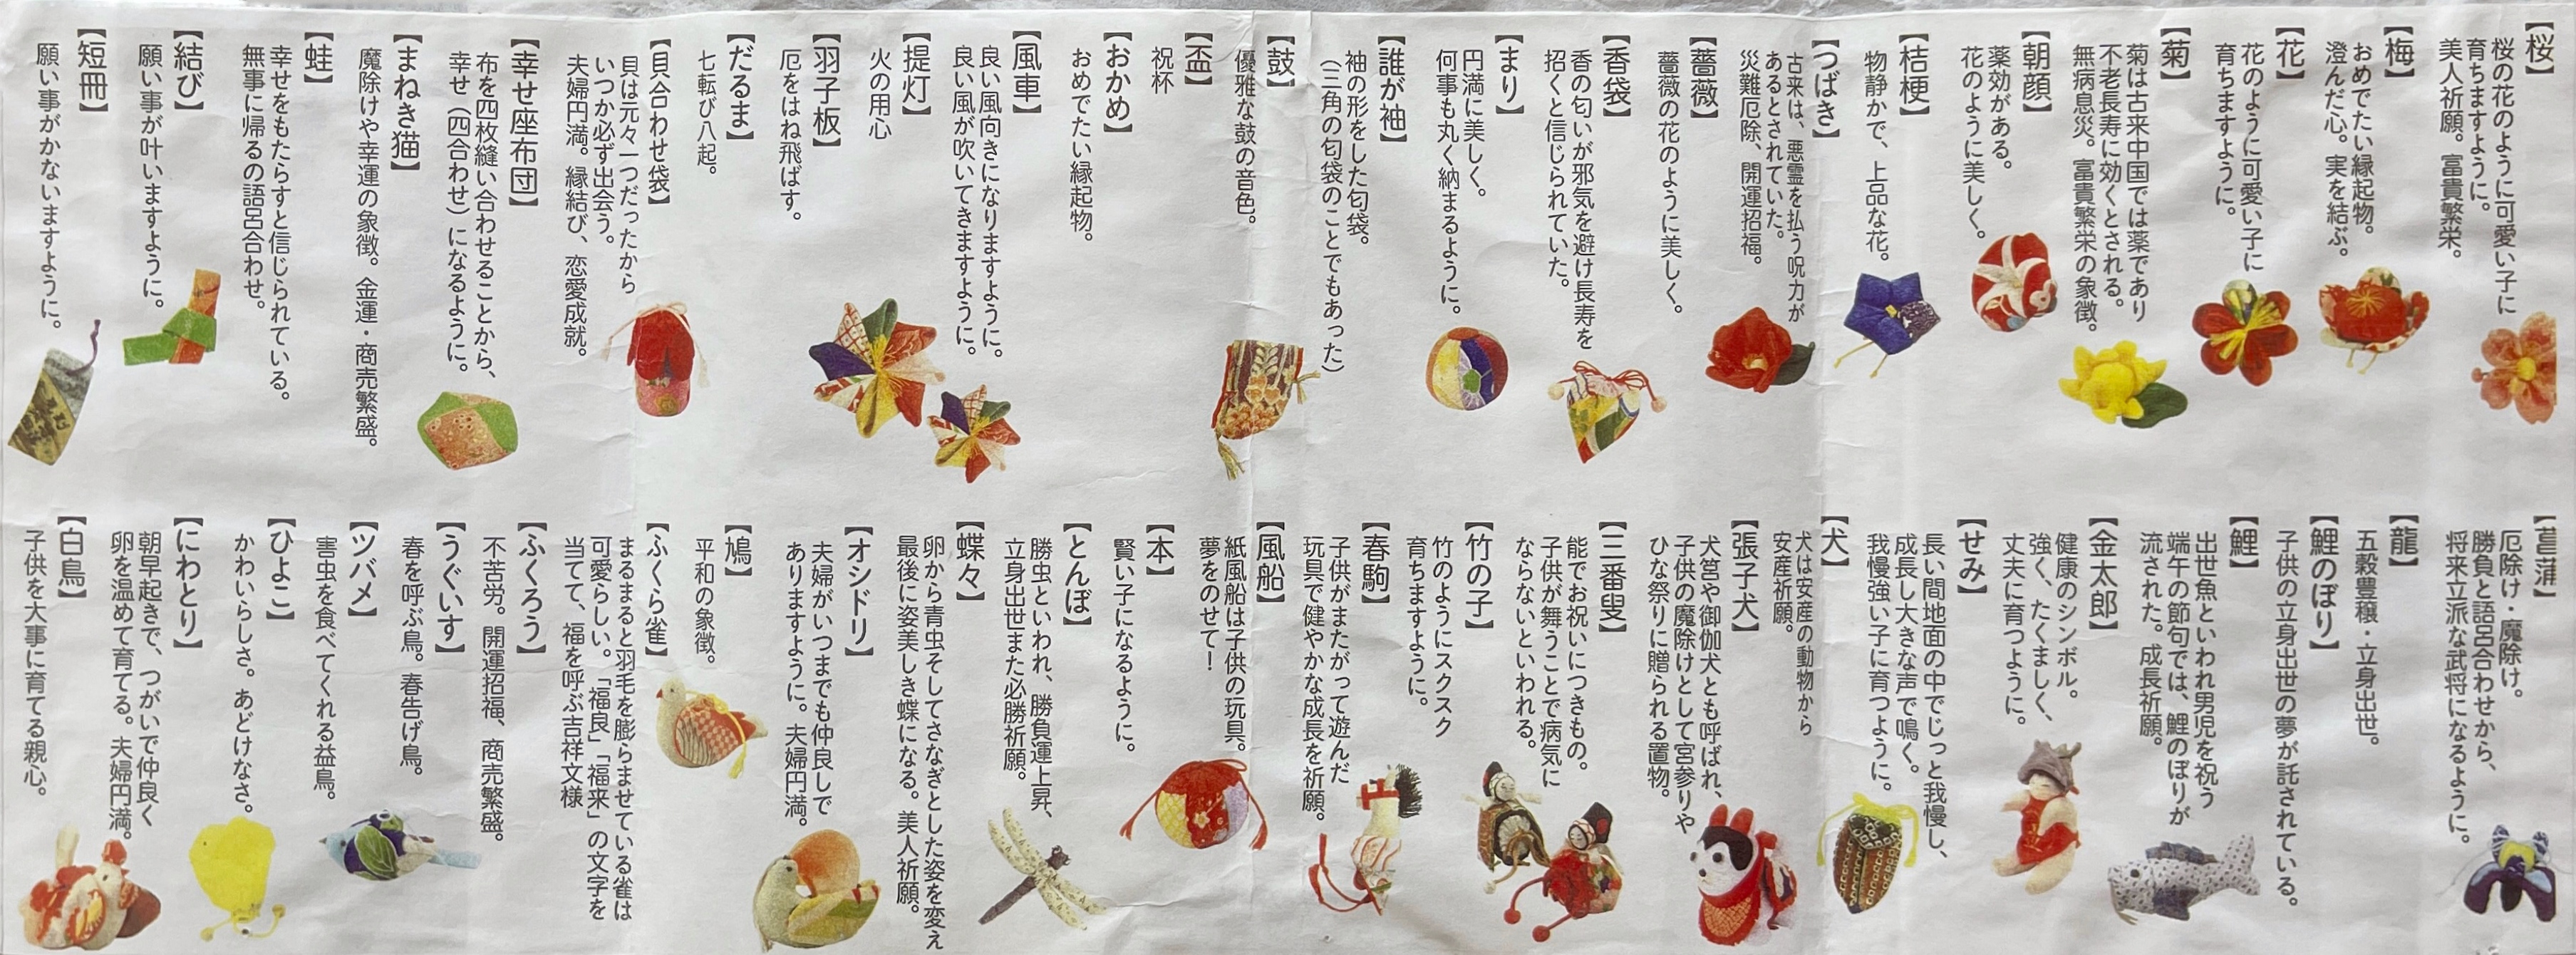 【桜】
桜の花のように可愛い子に
育ちますように。
美人祈願。富貴繁栄。
【梅】
おめでたい縁起物。
澄んだ心。実を結ぶ。
【花】
花のように可愛い子に
育ちますように。
【菊】
菊は古来中国では薬であり
不老長寿に効くとされる。
無病息災。富貴繁栄の象徴。
【朝顔】
薬効がある。
花のように美しく。
【桔梗】
物静かで、上品な花。
【つばき】
古来は、悪霊を払う呪力が
あるとされていた。
災難厄除、開運招福。
【薔薇】
薔薇の花のように美しく。
【香袋】
香の匂いが邪気を避け長寿を
招くと信じられていた。
【まり】
円満に美しく。
何事も丸く納まるように。
【誰が袖】
袖の形をした匂袋。
（三角の匂袋のことでもあった）
【鼓】
優雅な鼓の音色。
【盃】
祝杯
【おかめ】
おめでたい縁起物。
【風車】
良い風向きになりますように。
良い風が吹いてきますように。
【提灯】
火の用心
【羽子板】
厄をはね飛ばす。
【だるま】
七転び八起。
【貝合わせ袋】
貝は元々一つだったから
いつか必ず出会う。
夫婦円満。縁結び、恋愛成就。
【幸せ座布団】
布を四枚縫い合わせることから、
幸せ（四合わせ）になるように。
【まねき猫】
魔除けや幸運の象徴。金運・商売繁盛。
【蛙】
幸せをもたらすと信じられている。
無事に帰るの語呂合わせ。
【結び】
願い事が叶いますように。
【短冊】
願い事がかないますように。
【菖蒲】
厄除け・魔除け。
勝負と語呂合わせから、
将来立派な武将になるように。
【龍】
五穀豊穣・立身出世。
【鯉のぼり】
子供の立身出世の夢が託されている。
【鯉】
出世魚といわれ男児を祝う
端午の節句では、鯉のぼりが
流された。成長祈願。
【金太郎】
健康のシンボル。
強く、たくましく、
丈夫に育つように。
【せみ】
長い間地面の中でじっと我慢し、
成長し大きな声で鳴く。
我慢強い子に育つように。
【犬】
犬は安産の動物から
安産祈願。
【張子犬】
犬筥や御伽犬とも呼ばれ、
子供の魔除けとして宮参りや
ひな祭りに贈られる置物。
【三番叟】
能でお祝いにつきもの。
子供が舞うことで病気に
ならないといわれる。
【竹の子】
竹のようにスクスク
育ちますように。
【春駒】
子供がまたがって遊んだ
玩具で健やかな成長を祈願。
【風船】
紙風船は子供の玩具。
夢をのせて！
【本】
賢い子になるように。
【とんぼ】
勝虫といわれ、勝負運上昇、
立身出世また必勝祈願。
【蝶々】
卵から青虫そしてさなぎとした姿を変え
最後に姿美しき蝶になる。美人祈願。
【オシドリ】
夫婦がいつまでも仲良しで
ありますように。夫婦円満。
【鳩】
平和の象徴。
【ふくら雀】
まるまると羽毛を膨らませている雀は
可愛らしい。「福良」「福来」の文字を
当てて、福を呼ぶ吉祥文様
【ふくろう】
不苦労。開運招福、商売繁盛。
【うぐいす】
春を呼ぶ鳥。春告げ鳥。
【ツバメ】
害虫を食べてくれる益鳥。
【ひよこ】
かわいらしさ。あどけなさ。
【にわとり】
朝早起きで、つがいで仲良く
卵を温めて育てる。夫婦円満。
【白鳥】
子供を大事に育てる親心。